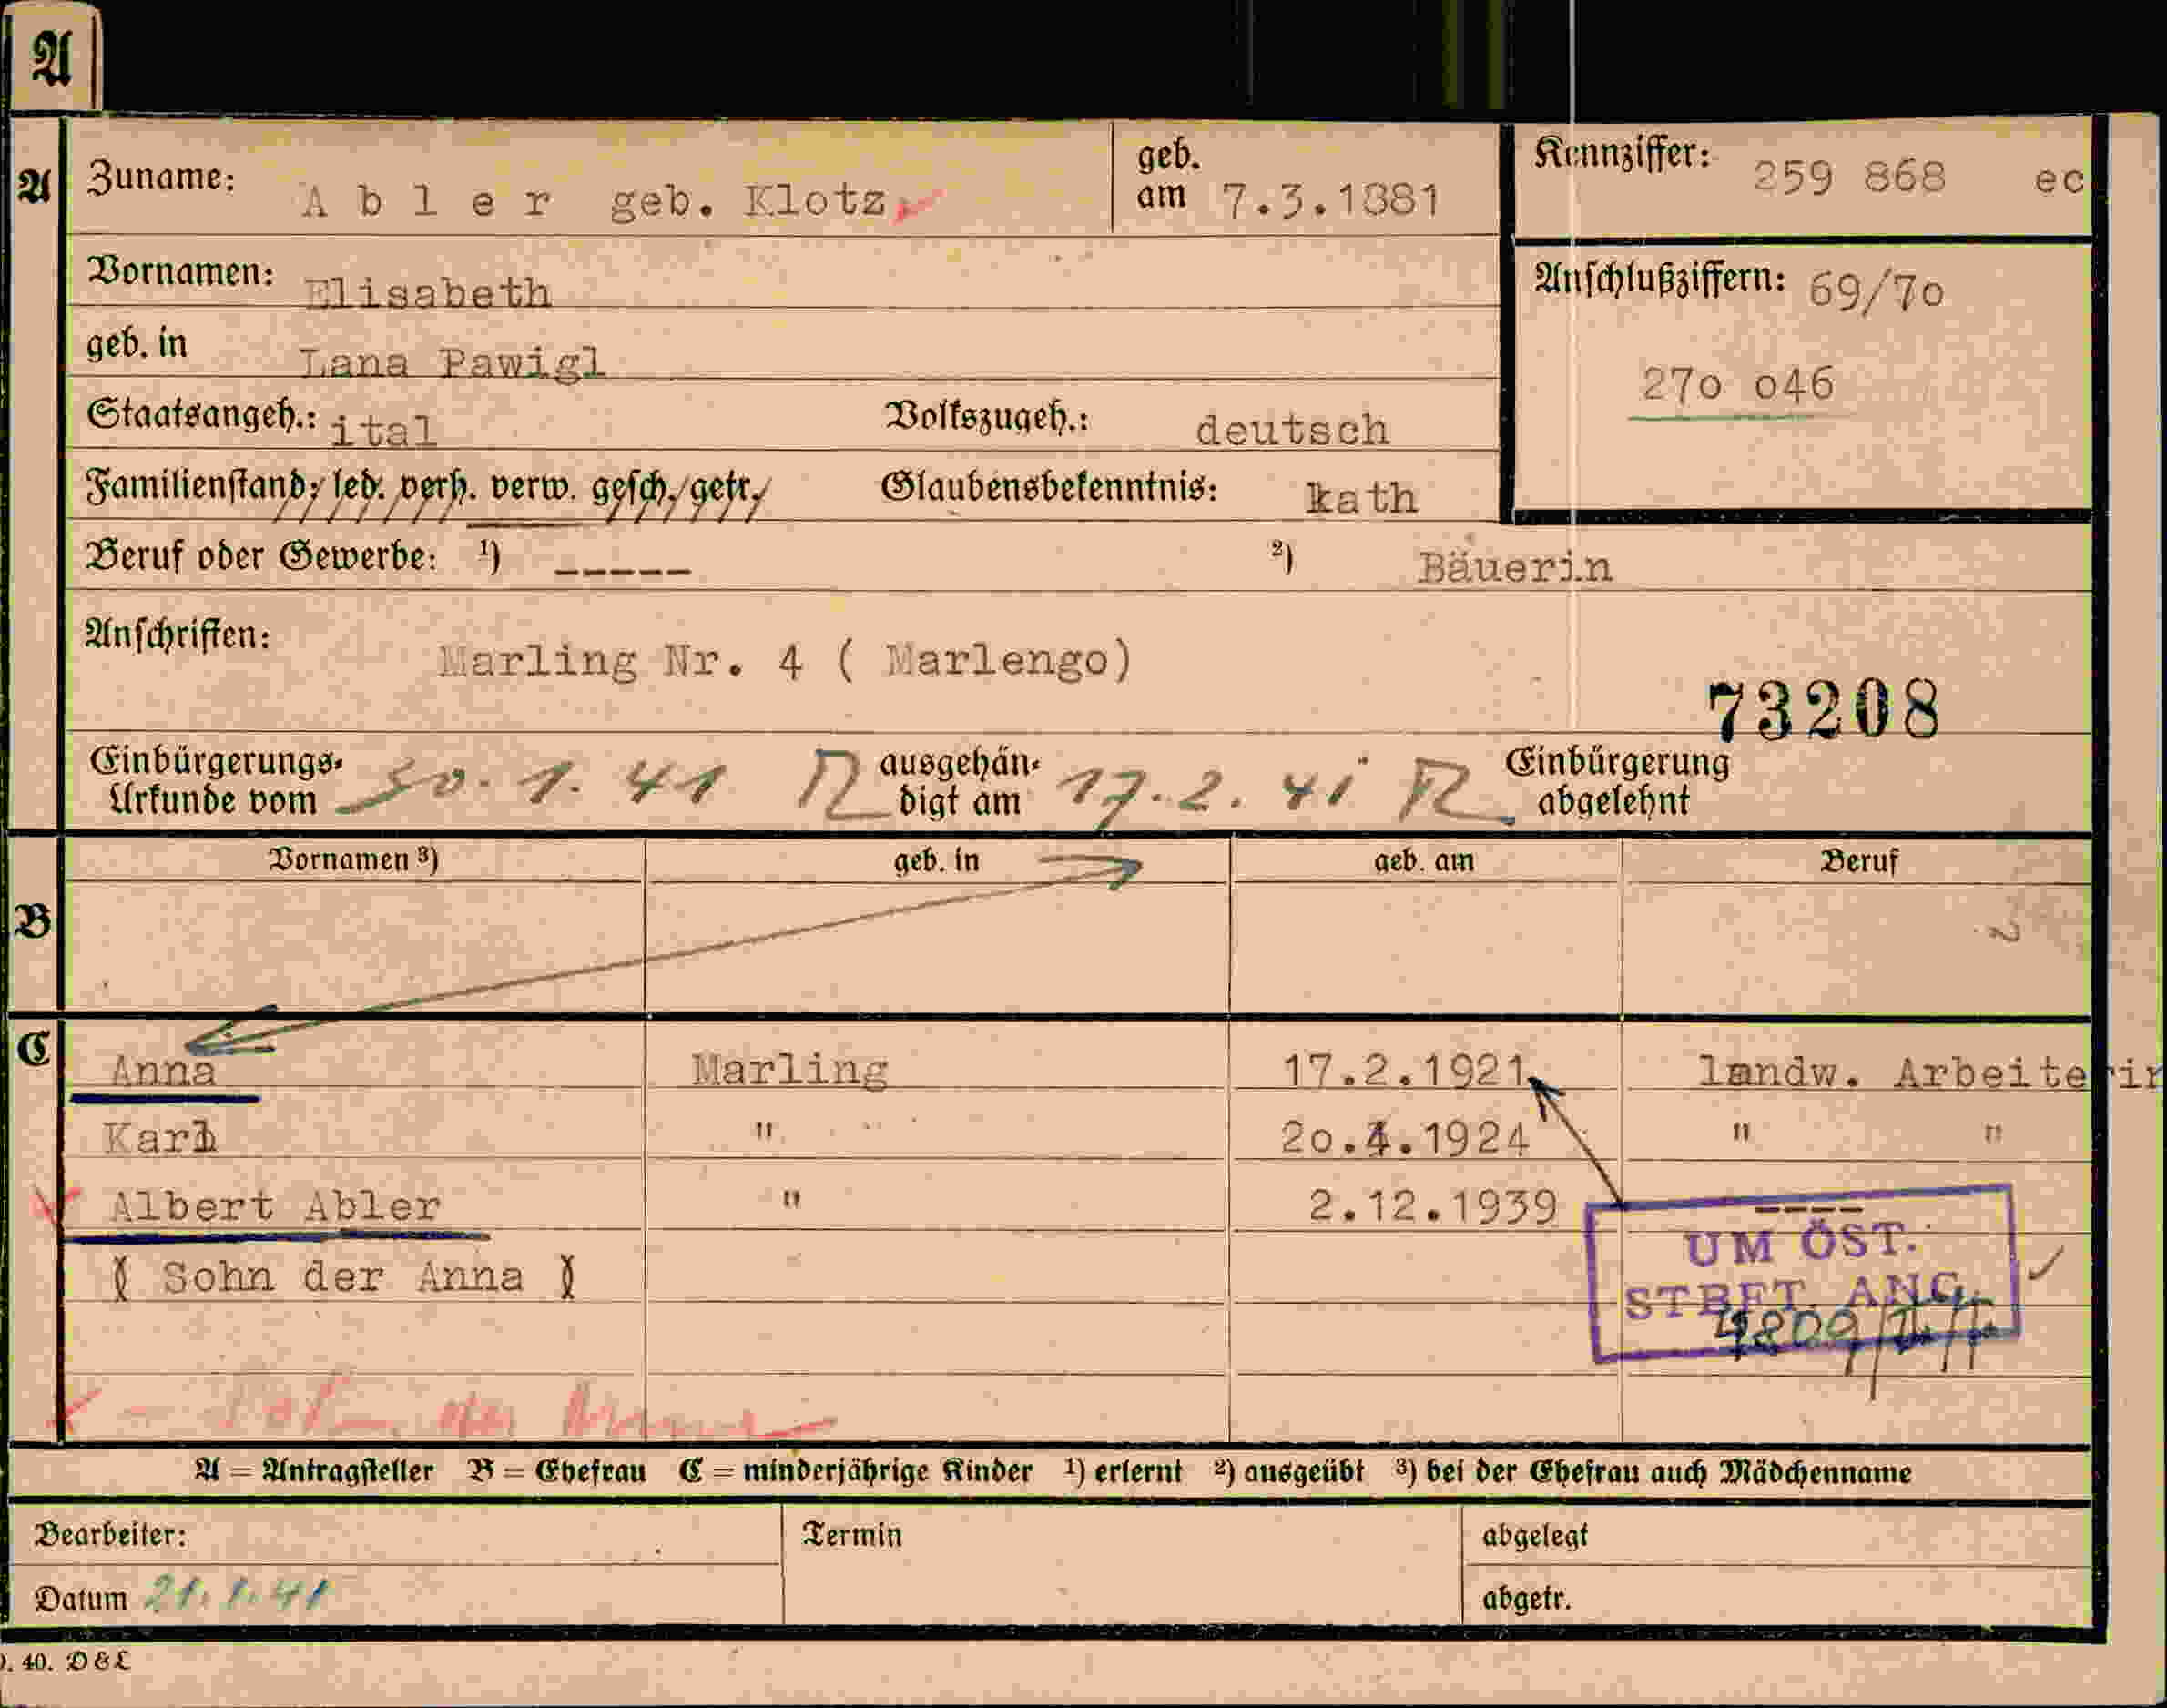 A
A Zuname: A b l e r geb. Klotz geb. am 7.3.1881 Kennziffer: 259 868 ec
Vornamen: Elisabeth Anschlußziffern: 69/70
geb. in Lana Pawigl 270 046
Staatsangeh.: ital Volkszugeh.: deutsch
Familienstand: led. verh. verw. gesch. getr. Glaubensbekenntnis: kath
Beruf oder Gewerbe: ¹) ----- ²) Bäuerin
Anschriften: Marling Nr. 4 ( Marlengo)
73208
Einbürgerungs-Urkunde vom 30.1.41 ausgehän-digt am 17.2.41 Einbürgerung abgelehnt
Vornamen ³) geb. in geb. am Beruf
B
C Anna Marling 17.2.1921 landw. Arbeiterin
Karl " 20.4.1924 " "
Albert Abler " 2.12.1939 ----
( Sohn der Anna )
UM ÖST.
STBFT. ANG.
A = Antragsteller B = Ehefrau C = minderjährige Kinder ¹) erlernt ²) ausgeübt ³) bei der Ehefrau auch Mädchenname
Bearbeiter: Termin abgelegt
Datum 21.1.41 abgetr.
40. D & L